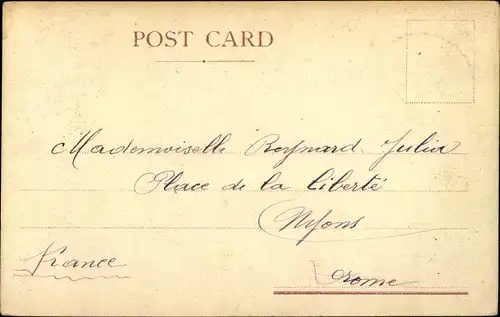 POST CARD
Mademoiselle Reynard Julia
Place de la liberté
Nyons
France
Drome